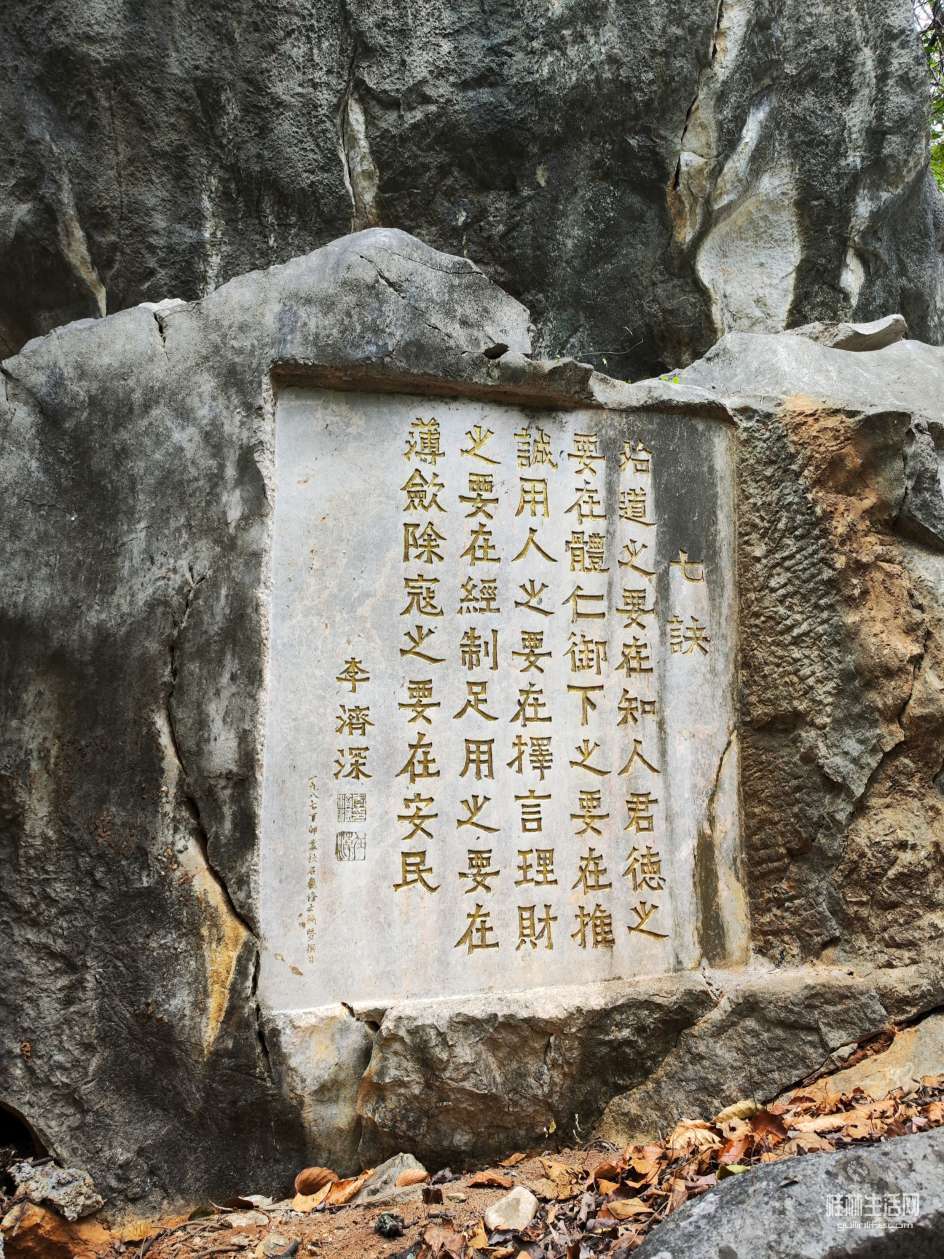 七訣
治道之要在知人君德之
要在體仁御下之要在推
誠用人之要在擇言理財
之要在經制足用之要在
薄歛除寇之要在安民
李濟深
一九八七丁卯
桂林生活网
guilinlife.com